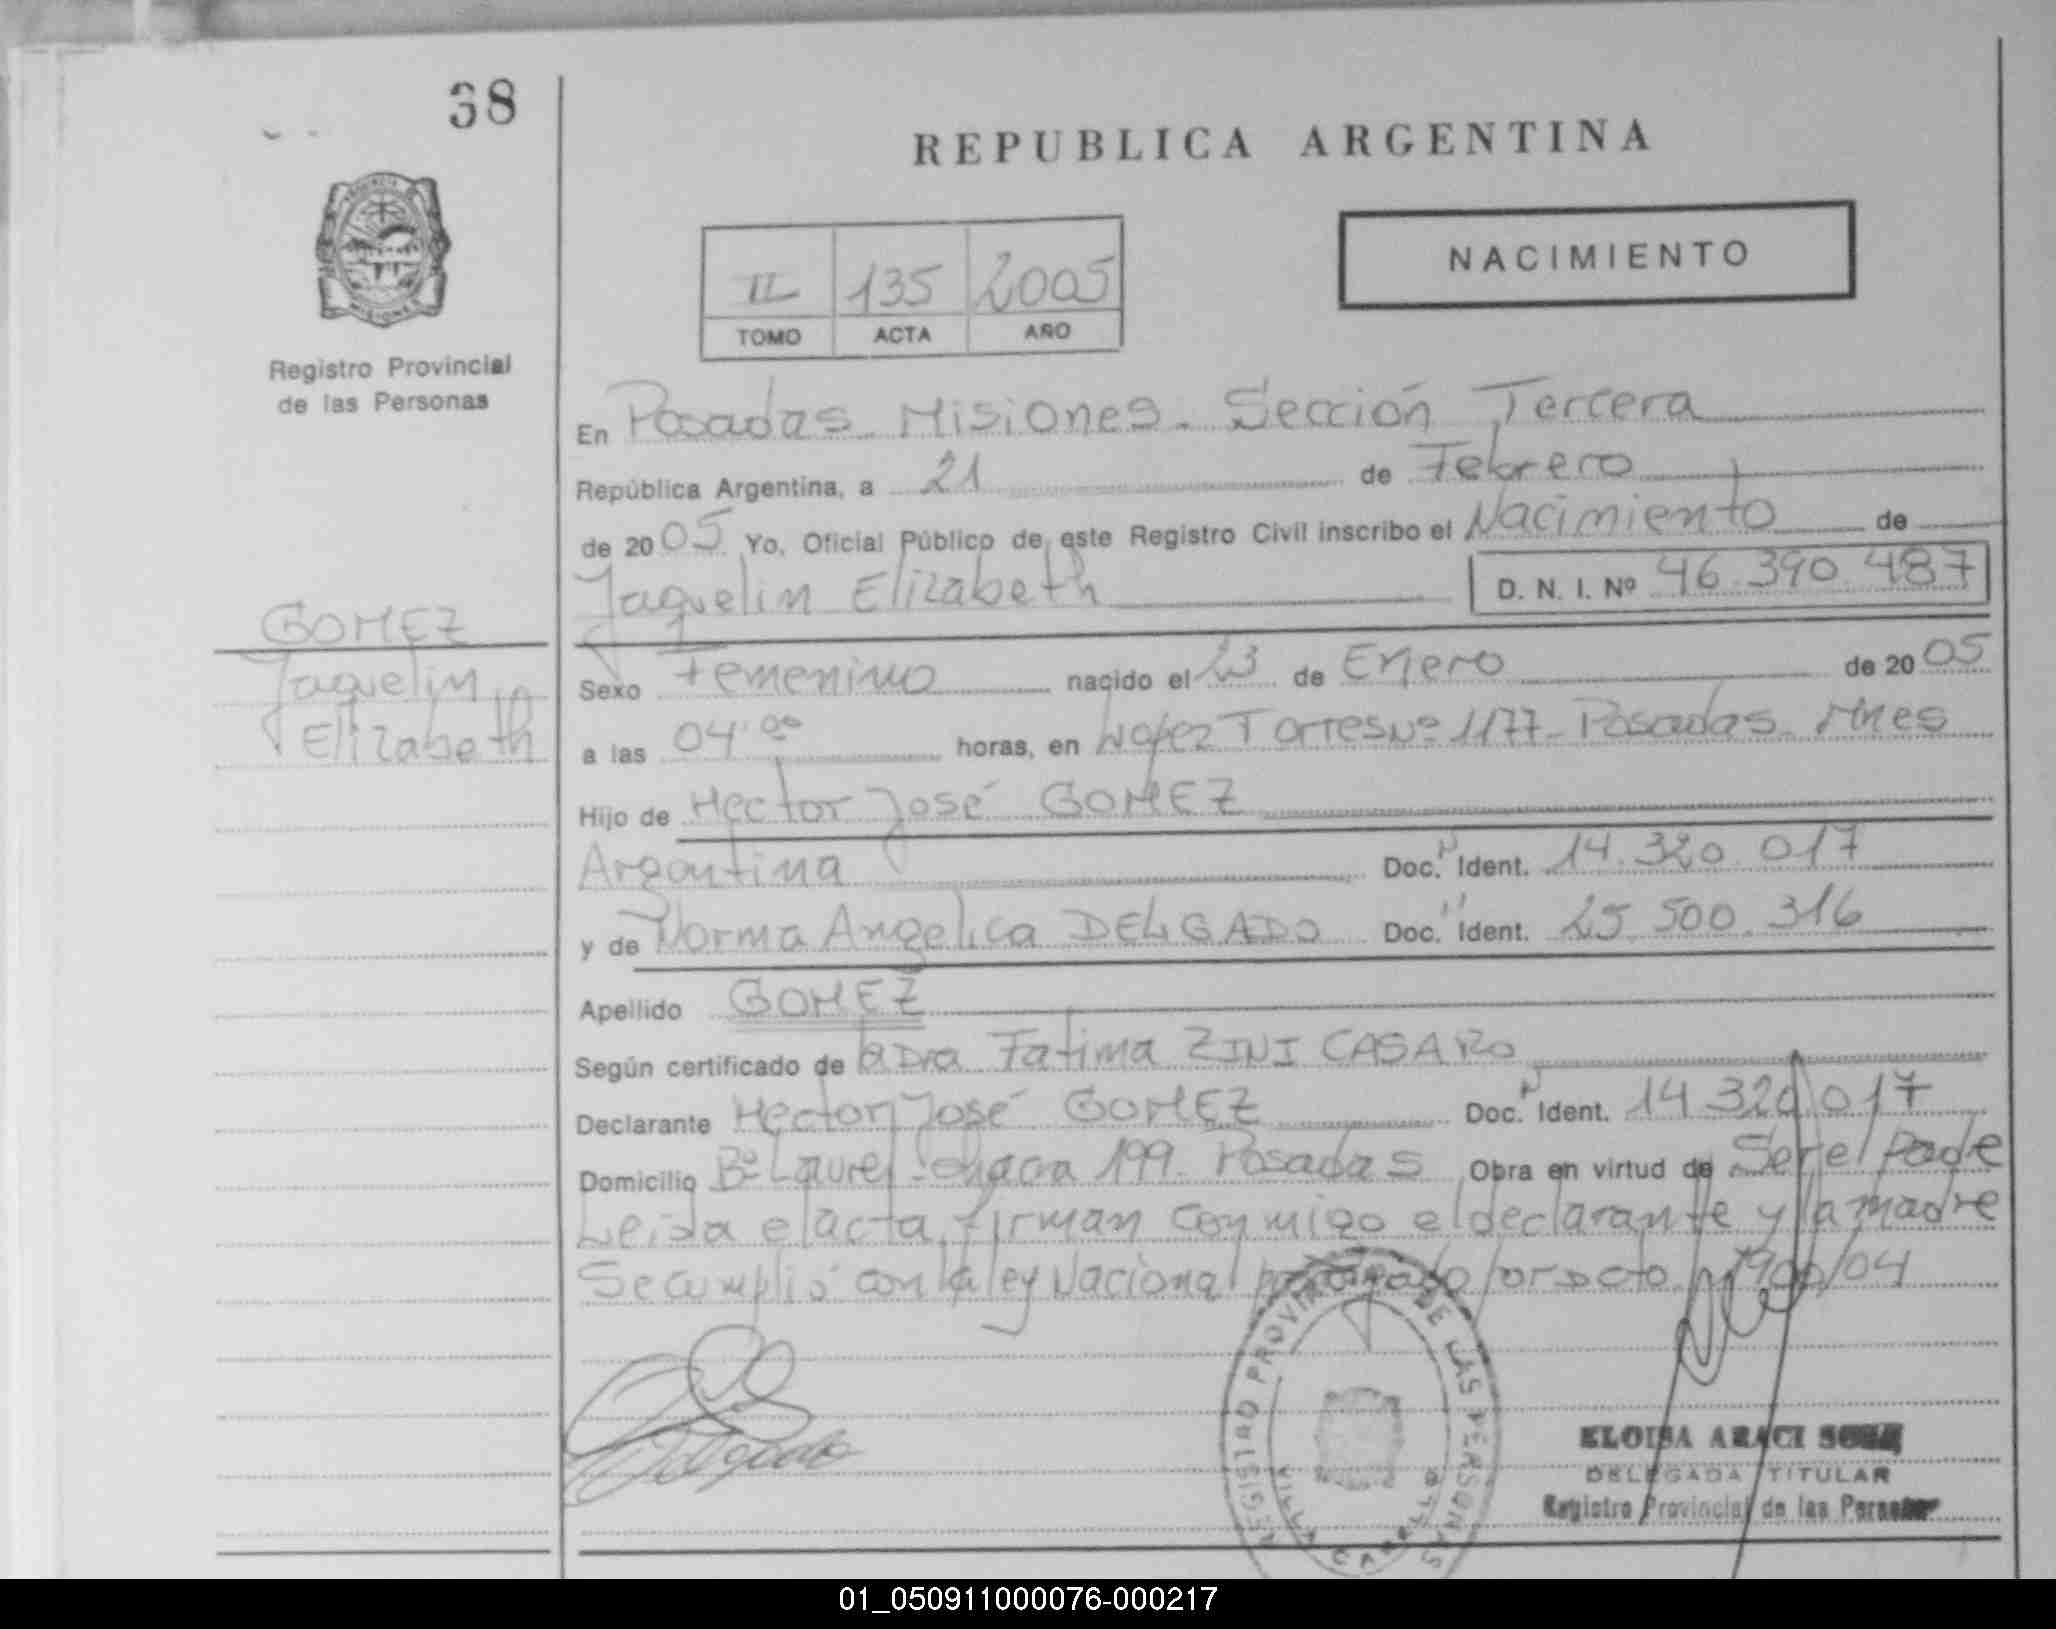 38
REPUBLICA ARGENTINA
NACIMIENTO
II 135 2005
TOMO ACTA AÑO
Registro Provincial
de las Personas
En Posadas Misiones. Sección Tercera
República Argentina, a 21 de Febrero
de 2005 Yo, Oficial Público de este Registro Civil inscribo el Nacimiento de
Jaquelin Elizabeth D. N. I. Nº 46.390.487
GOMEZ
Jaquelin
Elizabeth
Sexo Femenino nacido el 23 de Enero de 2005
a las 04.00 horas, en Lopez Torres Nº 1177 Posadas Mnes
Hijo de Hector José GOMEZ
Argentina Doc. N Ident. 14.320.017
y de Norma Angelica DELGADO Doc. " Ident. 25.500.316
Apellido GOMEZ
Según certificado de la Dra Fatima ZINI CASARO
Declarante Hector José GOMEZ Doc. N Ident. 14.320.017
Domicilio Bº Laurel chacra 199 Posadas Obra en virtud de Ser el Padre
Leida el acta, firman conmigo el declarante y la madre
Se cumplió con la ley Nacional por Dcto 1900/04
REGISTRO PROVINCIAL DE LAS PERSONAS
VILLA CABELLO
ELOISA ARACI
DELEGADA TITULAR
Registro Provincial de las Personas
01_050911000076-000217